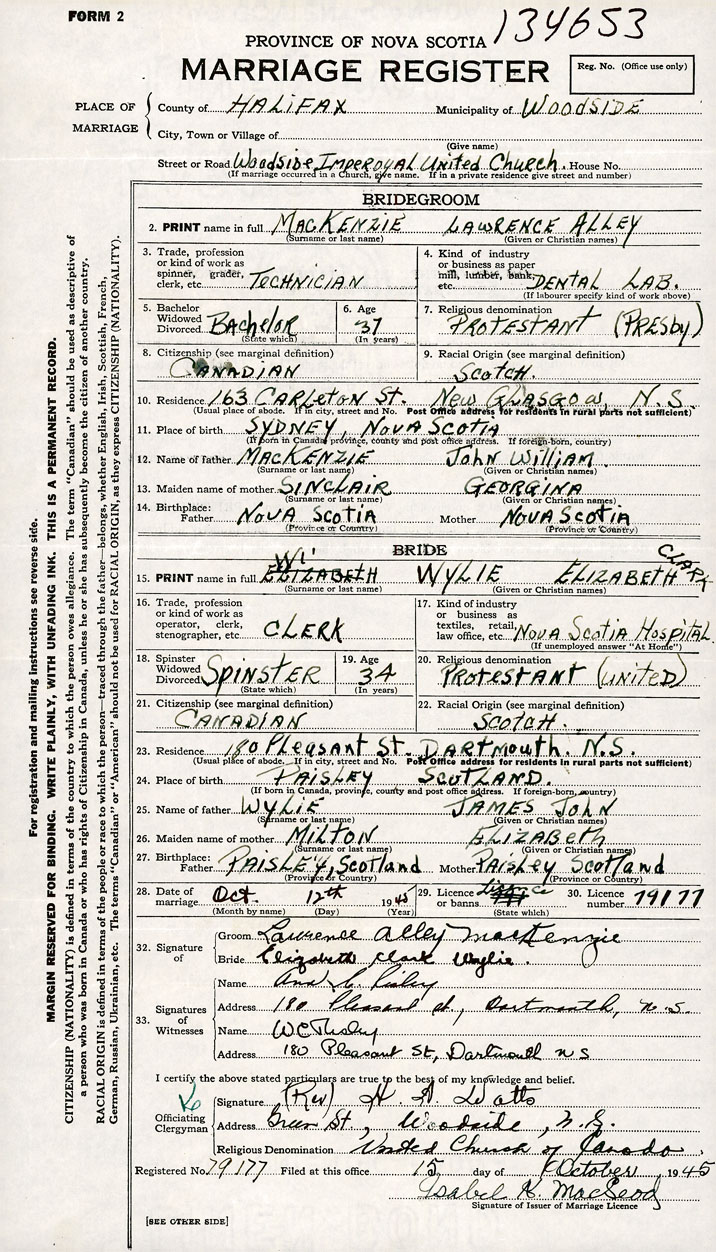 FORM 2
134653
PROVINCE OF NOVA SCOTIA
MARRIAGE REGISTER
Reg. No. (Office use only)
PLACE OF MARRIAGE
County of HALIFAX Municipality of WOODSIDE
City, Town or Village of
(Give name)
Street or Road Woodside Imperoyal United Church. House No.
(If marriage occurred in a Church, give name. If in a private residence give street and number)
BRIDEGROOM
2. PRINT name in full MACKENZIE LAWRENCE ALLEY
(Surname or last name) (Given or Christian names)
3. Trade, profession or kind of work as spinner, grader, clerk, etc. TECHNICIAN
4. Kind of industry or business as paper mill, lumber, bank, etc. DENTAL LAB.
(If labourer specify kind of work above)
5. Bachelor Widowed Divorced BACHELOR
(State which)
6. Age 37
(In years)
7. Religious denomination PROTESTANT (PRESBY)
8. Citizenship (see marginal definition) CANADIAN
9. Racial Origin (see marginal definition) SCOTCH.
10. Residence 163 CARLETON ST. NEW GLASGOW, N.S.
(Usual place of abode. If in city, street and No. Post Office address for residents in rural parts not sufficient)
11. Place of birth SYDNEY, NOVA SCOTIA
(If born in Canada, province, county and post office address. If foreign-born, country)
12. Name of father MACKENZIE JOHN WILLIAM.
(Surname or last name) (Given or Christian names)
13. Maiden name of mother SINCLAIR GEORGINA
(Surname or last name) (Given or Christian names)
14. Birthplace: Father NOVA SCOTIA Mother NOVA SCOTIA
(Province or Country) (Province or Country)
BRIDE
Wi
15. PRINT name in full ELIZABETH WYLIE ELIZABETH CLARK
(Surname or last name) (Given or Christian names)
16. Trade, profession or kind of work as operator, clerk, stenographer, etc. CLERK
17. Kind of industry or business as textiles, retail, law office, etc. NOVA SCOTIA HOSPITAL.
(If unemployed answer "At Home")
18. Spinster Widowed Divorced SPINSTER
(State which)
19. Age 34
(In years)
20. Religious denomination PROTESTANT (UNITED)
21. Citizenship (see marginal definition) CANADIAN
22. Racial Origin (see marginal definition) SCOTCH.
23. Residence 180 Pleasant St. DARTMOUTH. N.S.
(Usual place of abode. If in city, street and No. Post Office address for residents in rural parts not sufficient)
24. Place of birth PAISLEY SCOTLAND.
(If born in Canada, province, county and post office address. If foreign-born, country)
25. Name of father WYLIE JAMES JOHN
(Surname or last name) (Given or Christian names)
26. Maiden name of mother MILTON ELIZABETH
(Surname or last name) (Given or Christian names)
27. Birthplace: Father PAISLEY, Scotland Mother PAISLEY Scotland
(Province or Country) (Province or Country)
28. Date of marriage Oct. 12th 1945
(Month by name) (Day) (Year)
29. Licence or banns
(State which)
30. Licence number 79177
32. Signature of
Groom Lawrence Alley MacKenzie
Bride Elizabeth Clark Wylie.
33. Signatures of Witnesses
Name
Address 180 Pleasant st, Dartmouth, N.S.
Name
Address 180 Pleasant St, Dartmouth N S
I certify the above stated particulars are true to the best of my knowledge and belief.
Officiating Clergyman
Signature (Rev) H. A. Watts
Address St., Woodside, N.S.
Religious Denomination United Church of Canada
Registered No. 79177 Filed at this office 15 day of October 1945
Isabel K. MacLeod
Signature of Issuer of Marriage Licence
[SEE OTHER SIDE]
For registration and mailing instructions see reverse side.
MARGIN RESERVED FOR BINDING. WRITE PLAINLY, WITH UNFADING INK. THIS IS A PERMANENT RECORD.
CITIZENSHIP (NATIONALITY) is defined in terms of the country to which the person owes allegiance. The term "Canadian" should be used as descriptive of
a person who was born in Canada or who has rights of Citizenship in Canada, unless he or she has subsequently become the citizen of another country.
RACIAL ORIGIN is defined in terms of the people or race to which the person—traced through the father—belongs, whether English, Irish, Scottish, French,
German, Russian, Ukrainian, etc. The terms "Canadian" or "American" should not be used for RACIAL ORIGIN, as they express CITIZENSHIP (NATIONALITY).